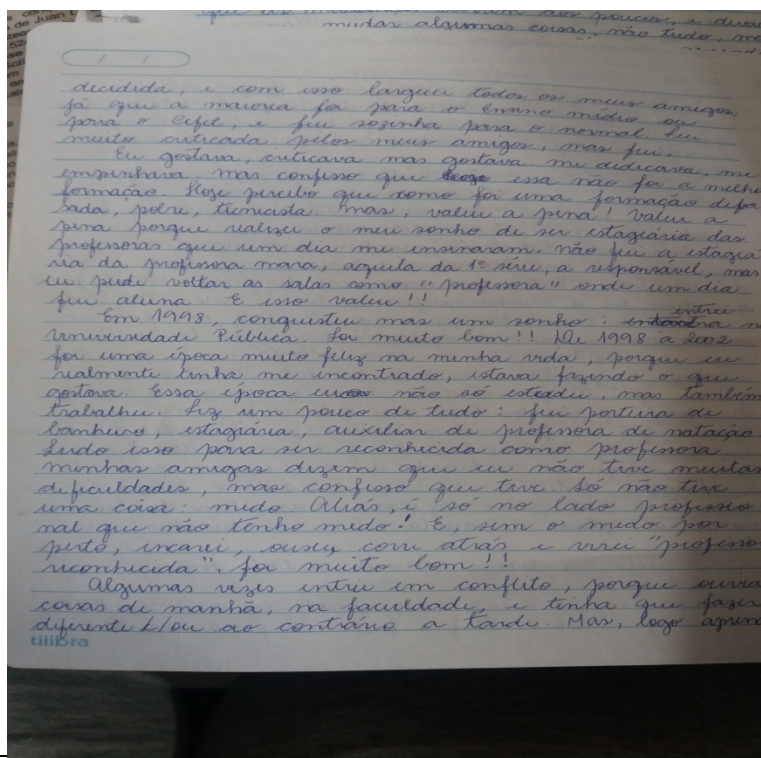 de Juan
mudar algumas coisas, não tudo, me
decidida, e com isso larguei todos os meus amigos,
já que a maioria foi para o Ensino médio ou
para o Cefet, e fui sozinha para o normal. Fui
muito criticada pelos meus amigos, mas fui.
Eu gostava, criticava mas gostava. me dedicava, me
empenhava. mas confesso que essa não foi a melho
formação. Hoje percebo que como foi uma formação defa
sada, pobre, tecnicista. mas, valeu a pena! Valeu a
pena porque realizei o meu sonho de ser estagiária das
professoras que um dia me ensinaram. não fui a estagiá
ria da professora mara, aquela da 1ª série, a responsável, mas
eu pude voltar as salas como "professora" onde um dia
fui aluna. E isso valeu!!
Em 1998, conquistei mas um sonho: entrei n
Universidade Pública. Foi muito bom!! De 1998 a 2002
foi uma época muito feliz na minha vida, porque eu
realmente tinha me encontrado, estava fazendo o que
gostava. Essa época não só estudei, mas também
trabalhei. Fiz um pouco de tudo: fui porteira de
banheiro, estagiária, auxiliar de professora de natação
Tudo isso para ser reconhecida como professora.
minhas amigas dizem que eu não tive muitas
dificuldades, mas confesso que tive. Só não tive
uma coisa: medo. Aliás, é só no lado profissio
nal que não tenho medo! E, sem o medo por
perto, encarei, ousei, corri atrás e virei "professo
reconhecida", foi muito bom!!
Algumas vezes entrei em conflito, porque ouvia
coisas de manhã, na faculdade, e tinha que fazer
diferente e/ou ao contrário a tarde. Mas, logo apren
tilibra